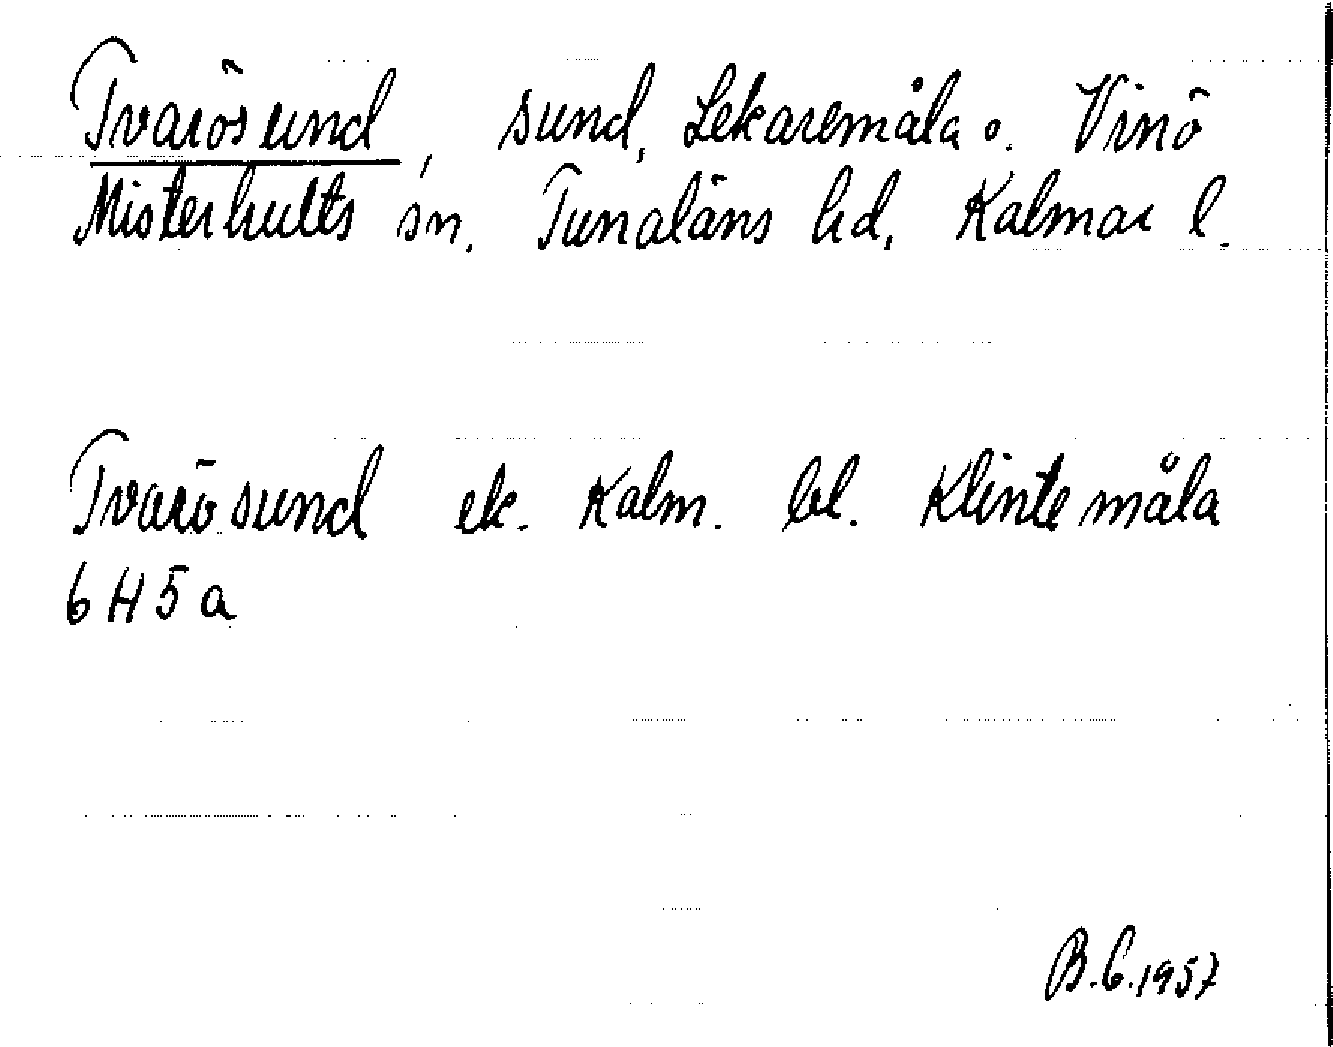 Tvarösund, sund, Lekaremåla o. Vinö
Misterhults sn. Tunaläns hd, Kalmar l.
Tvarösund ek. Kalm. bl. Klintemåla
6 H 5 a
B.G.1957